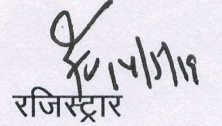 14/5/19
रजिस्ट्रार